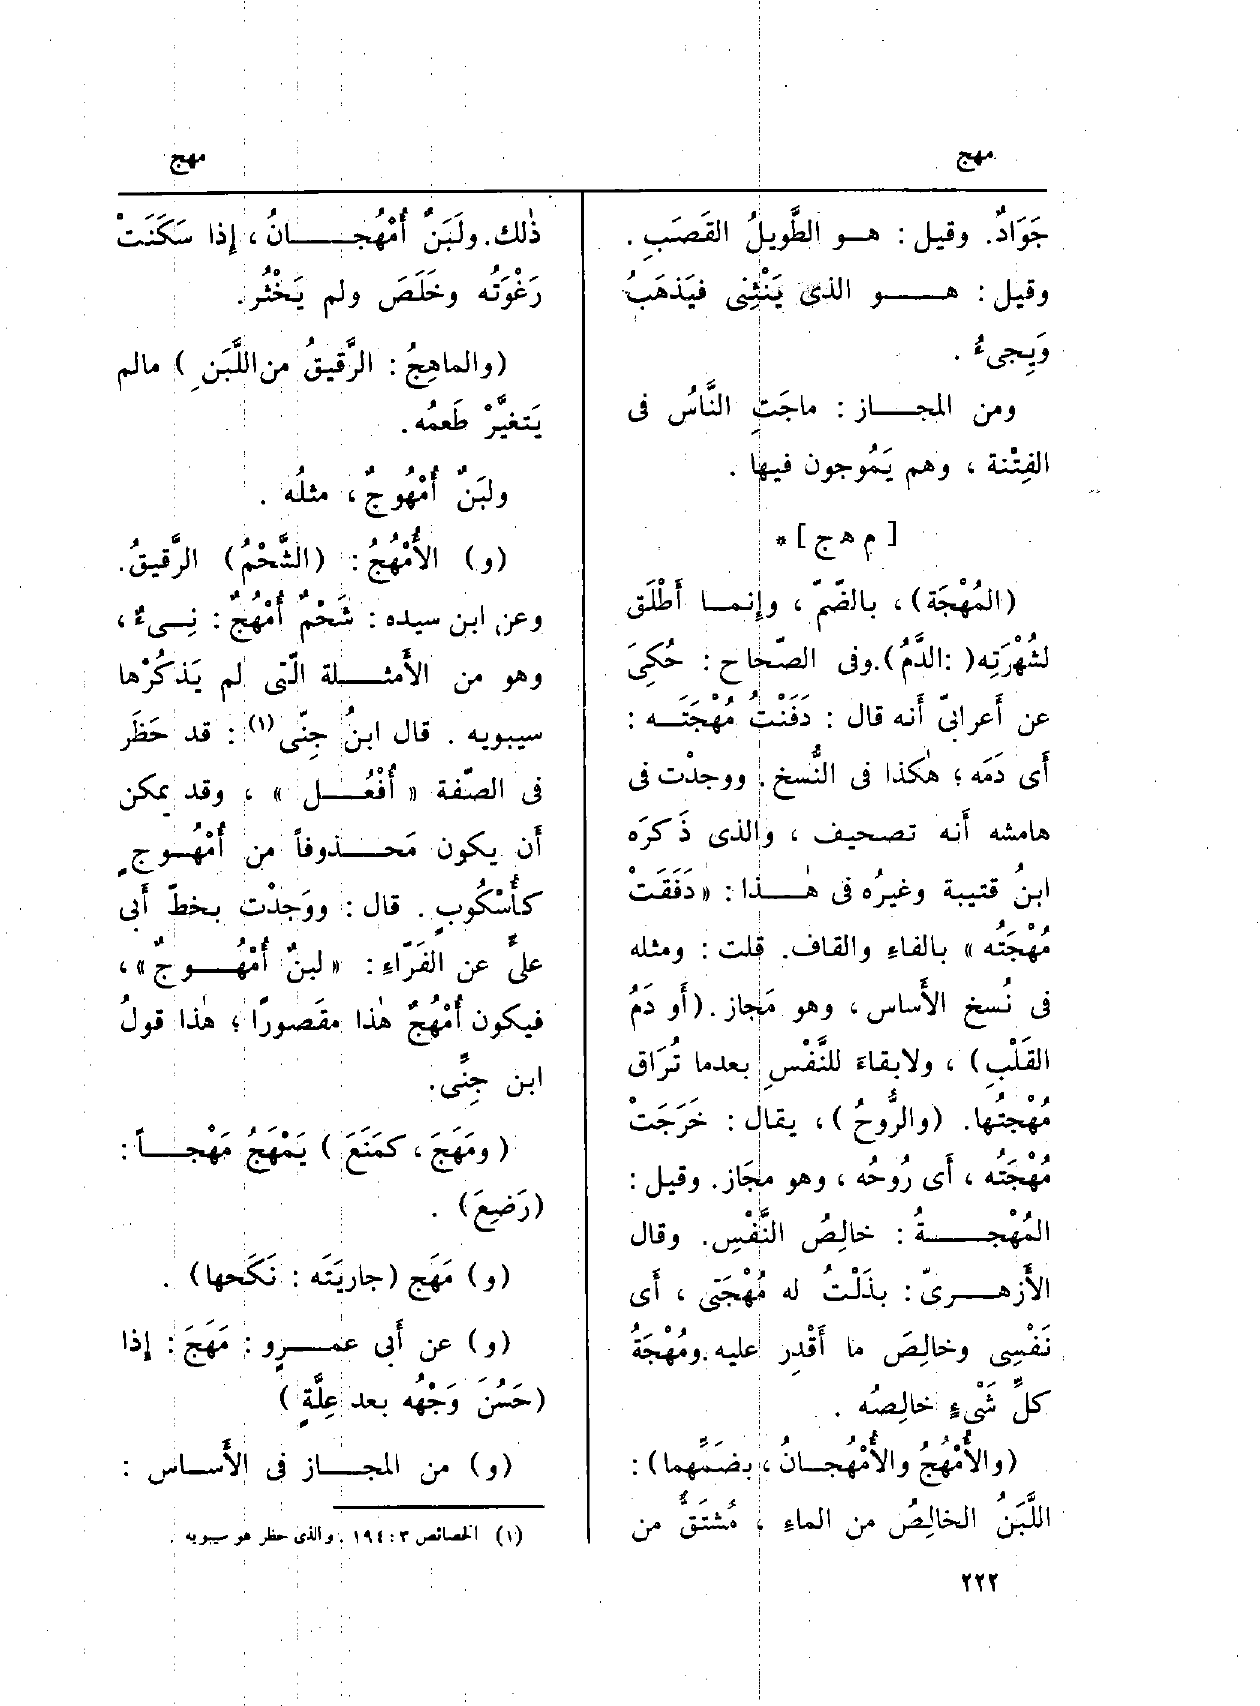 مهج
مهج
جَوَادٌ. وقيل : هـو الطَّويلُ القَصَبِ .
وقيل : هـو الذى يَنْثِنِى فيَذهَبُ
وَيجىءُ .
ومن المجـاز : ماجَتِ النَّاسُ فى
الفِتْنة ، وهم يَمُوجون فيها .
[ م ه ج ] *
(المُهْجَة) ، بالضّمّ ، وإنمـا أَطْلَق
لشُهْرَتِه( :الدَّمُ).وفى الصّحاح : حُكِىَ
عن أَعرابىّ أَنه قال : دَفَنْتُ مُهْجَتَـه :
أَى دَمَه ؛ هٰكذا فى النُّسخ . ووجدْت فى
هامشه أَنه تصحيف ، والذى ذَكرَه
ابنُ قتيبة وغيرُه فى هٰـذا : « دَفَقَتْ
مُهْجَتُه » بالفاءِ والقاف. قلت : ومثله
فى نُسخ الأَساس ، وهو مَجاز .(أَو دَمُ
القَلْبِ) ، ولابقاءَ للنَّفْسِ بعدما تُرَاق
مُهْجتُها. (والرُّوحُ) ، يقال : خَرَجَتْ
مُهْجَتُه ، أَى رُوحُه ، وهو مجَاز. وقيل :
المُهْجـةُ : خالِصُ النَّفْسِ. وقال
الأَزهـرىّ : بذَلْتُ له مُهْجَتِى ، أَى
نَفْسِى وخالِصَ ما أَقْدِر عليه.ومُهْجَةُ
كلِّ شَىْءٍ خالِصتُه .
(والأُمْهُجُ والأُمْهُجـانُ ، بضَمِّهما) :
اللَّبَنُ الخالِصُ من الماءِ ، مُشتَقٌّ من
ذٰلك. ولَبَنٌ أُمْهُجـانُ ، إذا سَكَنَتْ
رَغْوَتُه وخَلَصَ ولم يَخْثُر.
(والماهِجُ : الرَّقيقُ من اللَّبَنِ ) مالم
يَتغيَّرْ طَعمُه .
ولبَنٌ أُمْهُوجٌ ، مثلُه .
(و) الأُمْهُجُ : (الشَّحْمُ) الرَّقيقُ.
وعن ابن سيده : شَحْمٌ أُمْهُجٌ : نِـىءٌ ،
وهو من الأَمثـلة الّتى لم يَذكُرْها
سيبويه . قال ابنُ جِنّى (١) : قد حَظَر
فى الصّفة « أُفْعُـل » ، وقد يمكن
أَن يكون مَحـذوفاً من أُمْهُـوجٍ
كأُسْكُوبٍ . قال : ووَجدْت بخطّ أَبى
علىٍّ عن الفَرّاءِ : « لبنٌ أُمْهُـوجٌ » ،
فيكون أُمْهُجٌ هٰذا مقصورًا ؛ هٰذا قولُ
ابن جِنِّى.
( ومَهَجَ ، كمَنَعَ ) يَمْهَجُ مَهْجـاً :
(رَضِعَ) .
(و) مَهَج (جاريَتَه : نَكَحها) .
(و) عن أَبى عمـرٍو : مَهَجَ : إذا
(حَسُنَ وَجْهُه بعد عِلَّةٍ )
(و) من المجـاز فى الأَسـاس :
(١) الخصائص ٣ : ١٩٤ . والذى حظر هو سيبويه .
٢٢٢